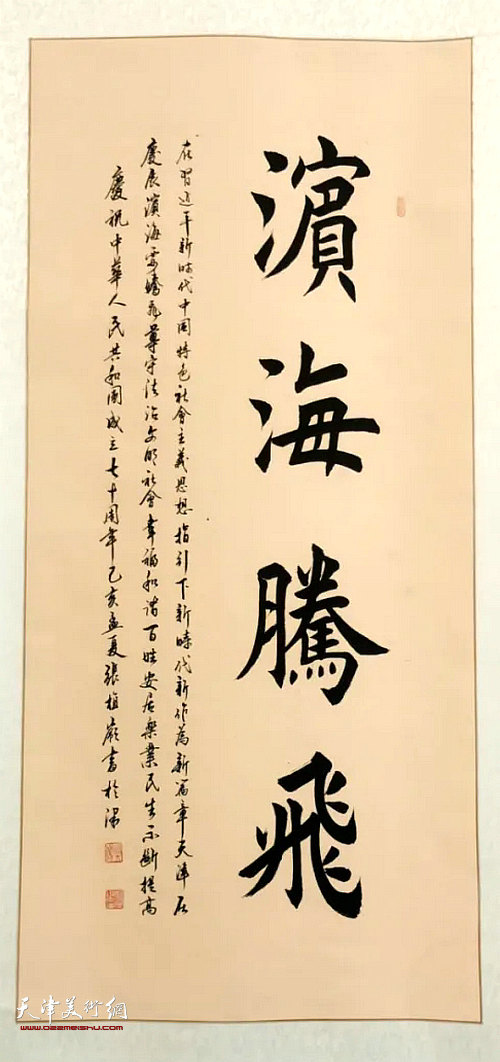 濵海騰飛
在習近平新時代中国特色社會主義思想指引下新時代新作為新篇章天津
慶展濵海雲 飛尊守法治文明社會幸福和谐百姓安居樂業民生不斷提高
慶祝中華人民共和國成立七十周年乙亥孟夏張植 書於
天津美術網
www.022meishu.com